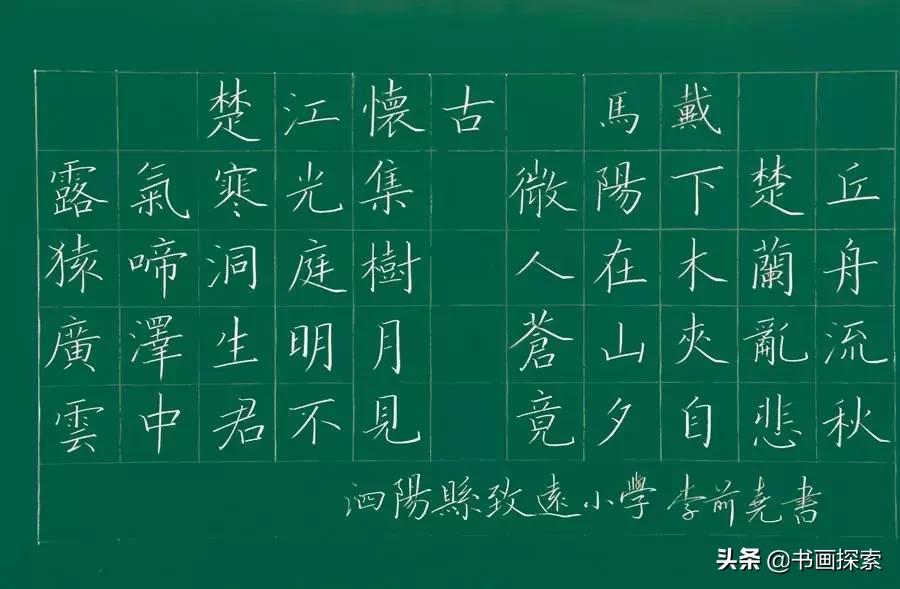 楚江懷古 馬戴
露氣寒光集 微陽下楚丘
猿啼洞庭樹 人在木蘭舟
廣澤生明月 蒼山夾亂流
雲中君不見 竟夕自悲秋
泗陽縣致遠小學 李前堯書
头条 @书画探索